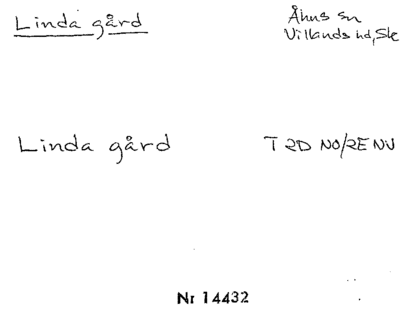 Linda gård
Åhus sn
Villands hd, Sk
Linda gård
T 2D NO/2E NV
Nr 14432